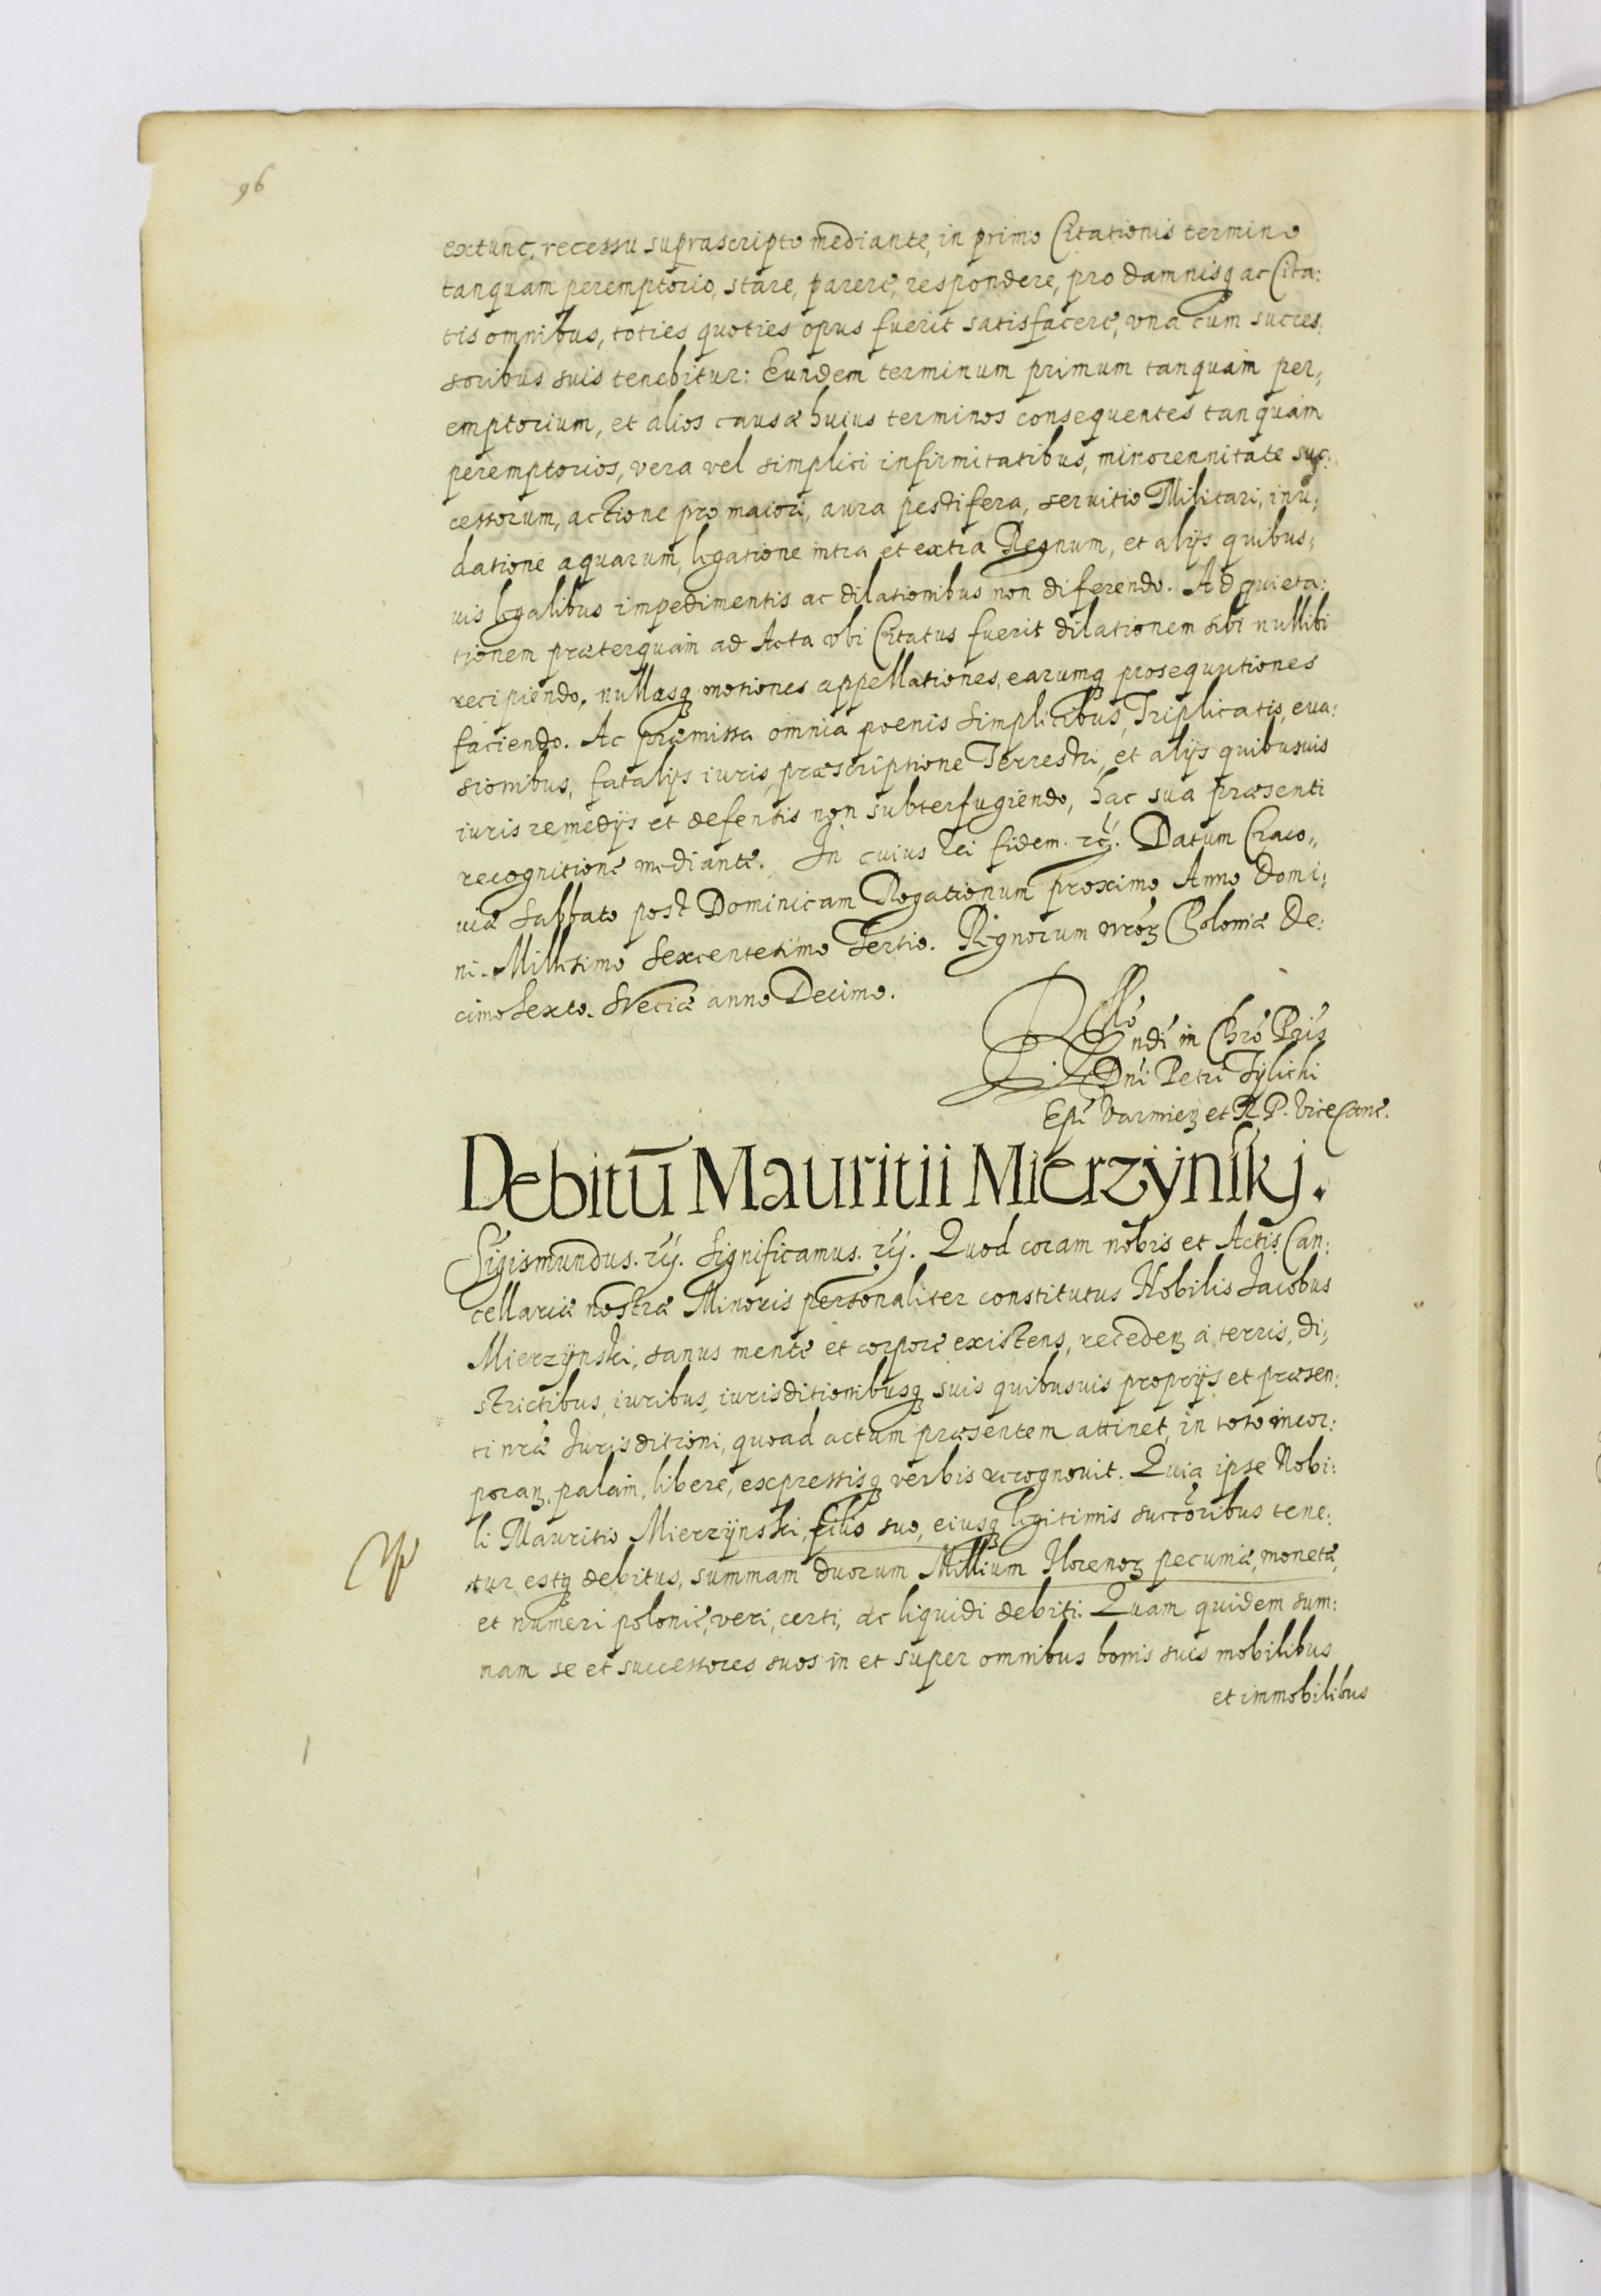 96
extunc, recessu suprascripto mediante, in primo Citationis termino
tanquam peremptorio, stare, parere, respondere, pro damnisq ac Cita:
tis omnibus, toties quoties opus fuerit satisfacere, vna cum succes:
soribus suis tenebitur: Eundem terminum primum tanquam per:
emptorium, et alios causæ huius terminos consequentes tanquam
peremptorios, vera vel simplici infirmitatibus, minorennitate suc:
cessorum, actione pro maiori, aura pestifera, seruitio Militari, inu:
datione aquarum, legatione intra et extra Regnum, et alijs quibus:
uis legalibus impedimentis ac dilationibus non diferendo. Ad quieta:
tionem præterquam ad Acta vbi Citatus fuerit dilationem sibi nullibi
recipiendo, nullasq motiones appellationes, earumq prosequutiones
faciendo. Ac præmissa omnia poenis simplicibus, Triplicatis, eua:
sionibus, fatalijs iuris, præscriptione Terrestri, et alijs quibusuis
iuris remedijs et defensis non subterfugiendo, hac sua præsenti
recognitione mediante. In cuius rei fidem. rc. Datum Craco,,
uiæ Sabbato post Dominicam Rogationum proximo Anno Domi:
ni. Millesimo Sexcentesimo Tertio. Regnorum nroꝝ Poloniæ De:
cimo Sexto. Sveciæ anno Decimo.
Rllo
ndi in Chro Pris
Dni Petri Tylichi
Epi Varmieꝝ et R. P. Vicecanc.
Debitū Mauritii Mierzÿnskj.
Sigismundus. rc. Significamus. rc. Quod coram nobis et Actis Can:
cellariæ nostræ Minoris personaliter constitutus Nobilis Jacobus
Mierzÿnski, sanus mente et corpore existens, recedenꝝ a terris, di:
strictibus, iuribus, iurisditionibusq suis quibusuis proprijs et præsen:
ti nræ Jurisditioni, quoad actum præsentem attinet, in toto incor:
poranꝝ, palam, libere, expressisq verbis recognouit. Quia ipse Nobi:
li Mauritio Mierzÿnski, filio suo, eiusq legitimis succoribus tene:
tur, estq debitus, summam duorum Millium Florenoꝝ pecuniæ, monetæ,
et numeri polonic, veri, certi, ac liquidi debiti. Quam quidem sum:
mam se et successores suos in et super omnibus bonis suis mobilibus
et immobilibus